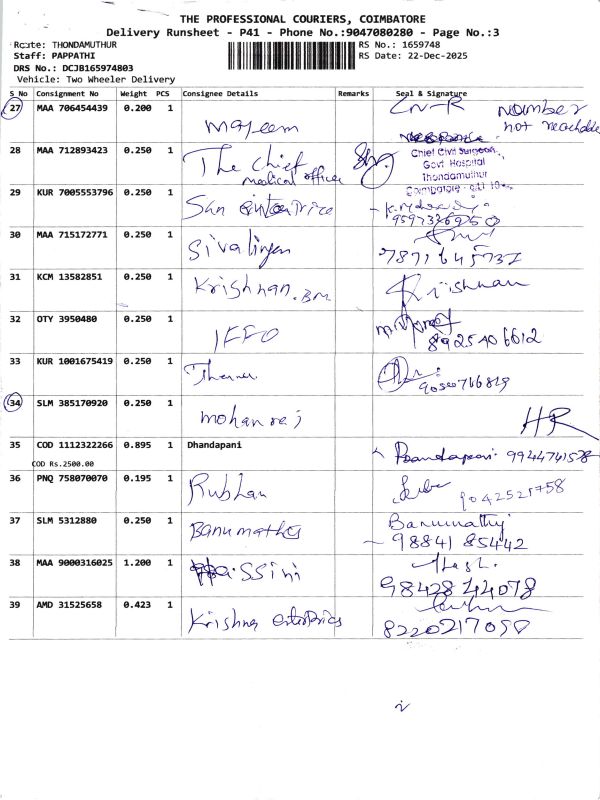 THE PROFESSIONAL COURIERS, COIMBATORE
Delivery Runsheet - P41 - Phone No.:9047080280 - Page No.:3
Route: THONDAMUTHUR RS No.: 1659748
Staff: PAPPATHI RS Date: 22-Dec-2025
DRS No.: DCJB165974803
Vehicle: Two Wheeler Delivery
S_No Consignment No Weight PCS Consignee Details Remarks Seal & Signature
27 MAA 706454439 0.200 1 Majeem CN-R Number
not reachable
28 MAA 712893423 0.250 1 The chief
medical officer
Chief Civil Surgeon
Govt Hospital
Thondamuthur
29 KUR 7005553796 0.250 1 Sun
30 MAA 715172771 0.250 1 Sivalingam
31 KCM 13582851 0.250 1 Krishnan.BM Krishnan
32 OTY 3950480 0.250 1 IFFO
8925406612
33 KUR 1001675419 0.250 1
34 SLM 385170920 0.250 1 mohanraj HR
35 COD 1112322266 0.895 1 Dhandapani 9944741578
COD Rs.2500.00
36 PNQ 758070070 0.195 1 Rubhan 9042521758
37 SLM 5312880 0.250 1 Banumathy Banumathy
98841 85442
38 MAA 9000316025 1.200 1
98428 44078
39 AMD 31525658 0.423 1 Krishna enterprices
8220217050